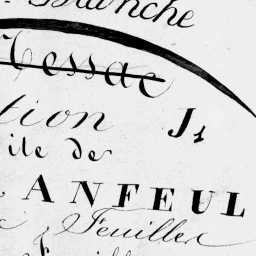 Blanche
Messac
tion J1
ile de
ANFEUL
Feuilles